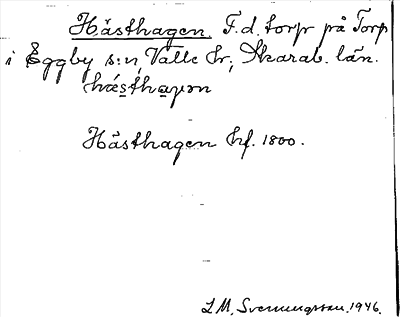 Hästhagen. F.d. torp på Torp
i Eggby s:n, Valle hr; Skarab. län.
hǻsthaɡ̵ən
Hästhagen hf. 1800.
L M, Svenningsson, 1946.